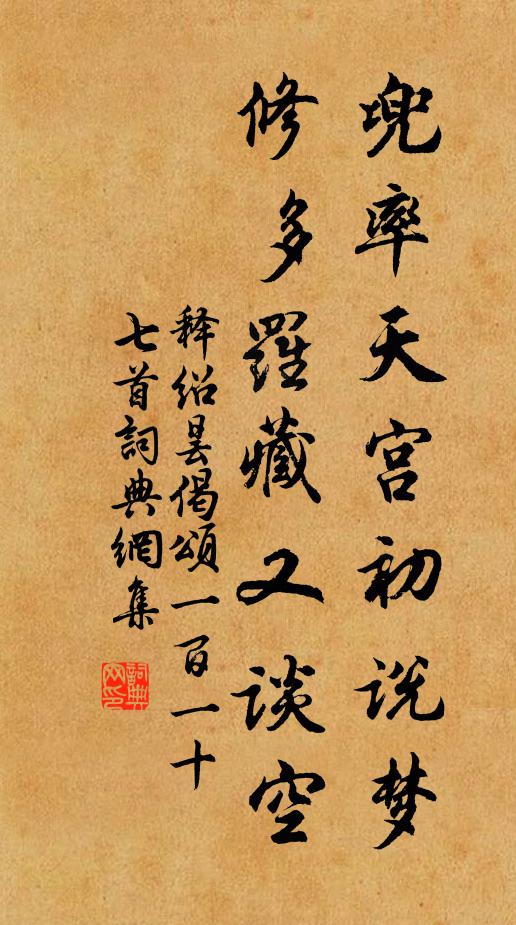 兜率天宫初说梦
修多羅藏又谈空
释绍昙偈颂一百一十
七首詞典網集
詞典
网印